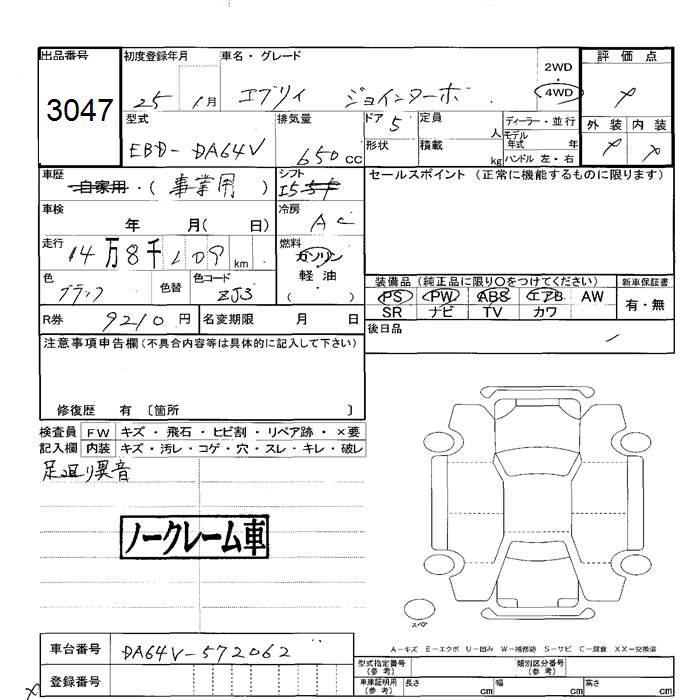 出品番号 初度登録年月 車名・グレード 2WD 評価点
3047 25年 1月 エブリイ ジョインターボ ・ 4WD
型式 排気量 ドア 5 定員 人 ディーラー・並行 外装 内装
EBD-DA64V 650cc 形状 積載 kg モデル年式 年
ハンドル 左・右
車歴 シフト セールスポイント (正常に機能するものに限ります)
自家用・(事業用) I5 5F
車検 年 月( 日) 冷房 AC
走行 14万8千109km 燃料 ガソリン
軽油
( )
色 ブラック 色替 色コード ZJ3
装備品 (純正品に限り○をつけてください) 新車保証書
PS PW ABS エアB AW 有・無
SR ナビ TV カワ
R券 9210円 名変期限 月 日
後日品
注意事項申告欄(不具合内容等は具体的に記入して下さい)
修復歴 有 〔箇所 〕
検査員 FW キズ・飛石・ヒビ割・リペア跡・×要
記入欄 内装 キズ・汚レ・コゲ・穴・スレ・キレ・破レ
足回り異音
ノークレーム車
スペア
A-キズ E-エクボ U-凹み W-補修跡 S-サビ C-腐食 XX-交換済
車台番号 DA64V-572062
登録番号
型式指定番号(参考) 類別区分番号(参考)
車庫証明用(参考) 長さ cm 幅 cm 高さ cm